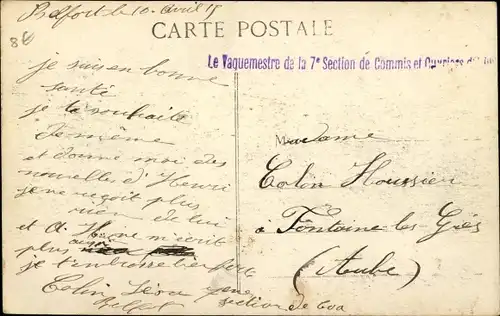 Belfort le 10 avril 15
CARTE POSTALE
8€
Le Vaguemestre de la 7e Section de Commis et Ouvriers
je suis en bonne
santé
je te souhaite
de même
et donne moi des
nouvelle d'Henri
je ne reçoit plus
rien de lui
et A. ne m'écrit
plus
je t'embrasse bien fort
Colin Léon 7eme
Belfort section de Coa
Madame
Colon Houssier
à Fontaine les Grès
(Aube)